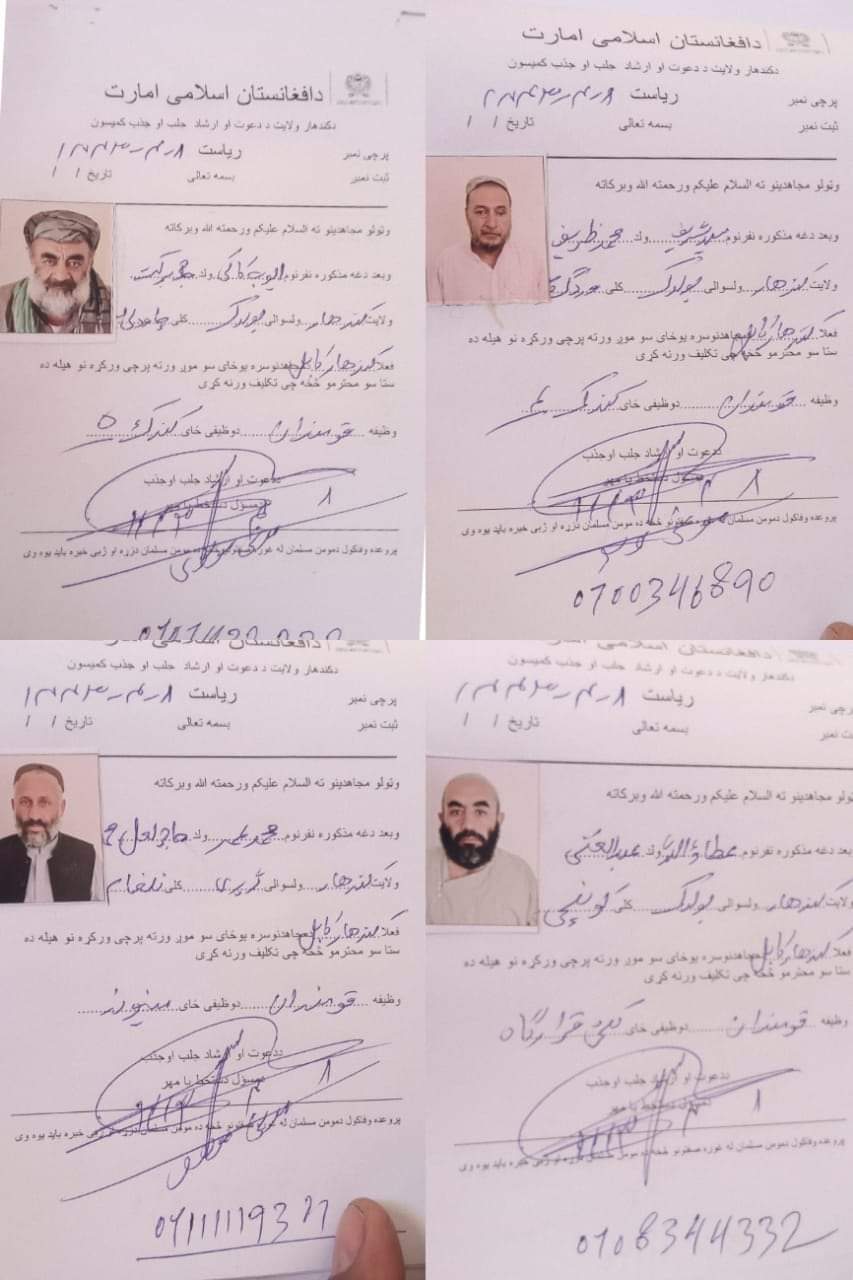 دافغانستان اسلامی امارت
دکندهار ولایت د دعوت او ارشاد جلب او جذب کمیسون
پرچی نمبر ریاست
ثبت نمبر بسمه تعالی تاریخ / /
وتولو مجاهدینو ته السلام علیکم ورحمته الله وبرکاته
وبعد دغه مذکوره نفرنوم ولد
ولایت کندهار ولسوالی بولدک کلی
فعلا کندهار کابل مجاهدنوسره یوخای سو موږ ورته پرچی ورکړه نو هیله ده
ستا سو محترمو څخه چی تکلیف ورنه کړی
وظیفه قومندان دوظیفی خای کندک ۵
ددعوت او ارشاد جلب اوجذب
مسؤل دستخط یا مهر
پروعده وفاکول دمومن مسلمان له غوره صفتونو څخه ده مومن مسلمان دزړه او ژبی خبره باید یوه وی
دافغانستان اسلامی امارت
دکندهار ولایت د دعوت او ارشاد جلب او جذب کمیسون
پرچی نمبر ریاست
ثبت نمبر بسمه تعالی تاریخ / /
وتولو مجاهدینو ته السلام علیکم ورحمته الله وبرکاته
وبعد دغه مذکوره نفرنوم ولد محمد ظریف
ولایت کندهار ولسوالی بولدک کلی
فعلا کندهار کابل مجاهدنوسره یوخای سو موږ ورته پرچی ورکړه نو هیله ده
ستا سو محترمو څخه چی تکلیف ورنه کړی
وظیفه قومندان دوظیفی خای کندک ۴
ددعوت او ارشاد جلب اوجذب
مسؤل دستخط یا مهر
پروعده وفاکول دمومن مسلمان له غوره صفتونو څخه ده مومن مسلمان دزړه او ژبی خبره باید یوه وی
0700346890
دافغانستان اسلامی امارت
دکندهار ولایت د دعوت او ارشاد جلب او جذب کمیسون
پرچی نمبر ریاست
ثبت نمبر بسمه تعالی تاریخ / /
وتولو مجاهدینو ته السلام علیکم ورحمته الله وبرکاته
وبعد دغه مذکوره نفرنوم محمد عمر ولد حاجی لعل
ولایت کندهار ولسوالی کلی
فعلا کندهار کابل مجاهدنوسره یوخای سو موږ ورته پرچی ورکړه نو هیله ده
ستا سو محترمو څخه چی تکلیف ورنه کړی
وظیفه قومندان دوظیفی خای
ددعوت او ارشاد جلب اوجذب
مسؤل دستخط یا مهر
پروعده وفاکول دمومن مسلمان له غوره صفتونو څخه ده مومن مسلمان دزړه او ژبی خبره باید یوه وی
دافغانستان اسلامی امارت
دکندهار ولایت د دعوت او ارشاد جلب او جذب کمیسون
پرچی نمبر ریاست
ثبت نمبر بسمه تعالی تاریخ / /
وتولو مجاهدینو ته السلام علیکم ورحمته الله وبرکاته
وبعد دغه مذکوره نفرنوم عطاؤالله ولد عبدالغنی
ولایت کندهار ولسوالی بولدک کلی
فعلا کندهار کابل مجاهدنوسره یوخای سو موږ ورته پرچی ورکړه نو هیله ده
ستا سو محترمو څخه چی تکلیف ورنه کړی
وظیفه قومندان دوظیفی خای قرارگاه
ددعوت او ارشاد جلب اوجذب
مسؤل دستخط یا مهر
پروعده وفاکول دمومن مسلمان له غوره صفتونو څخه ده مومن مسلمان دزړه او ژبی خبره باید یوه وی
0708344332